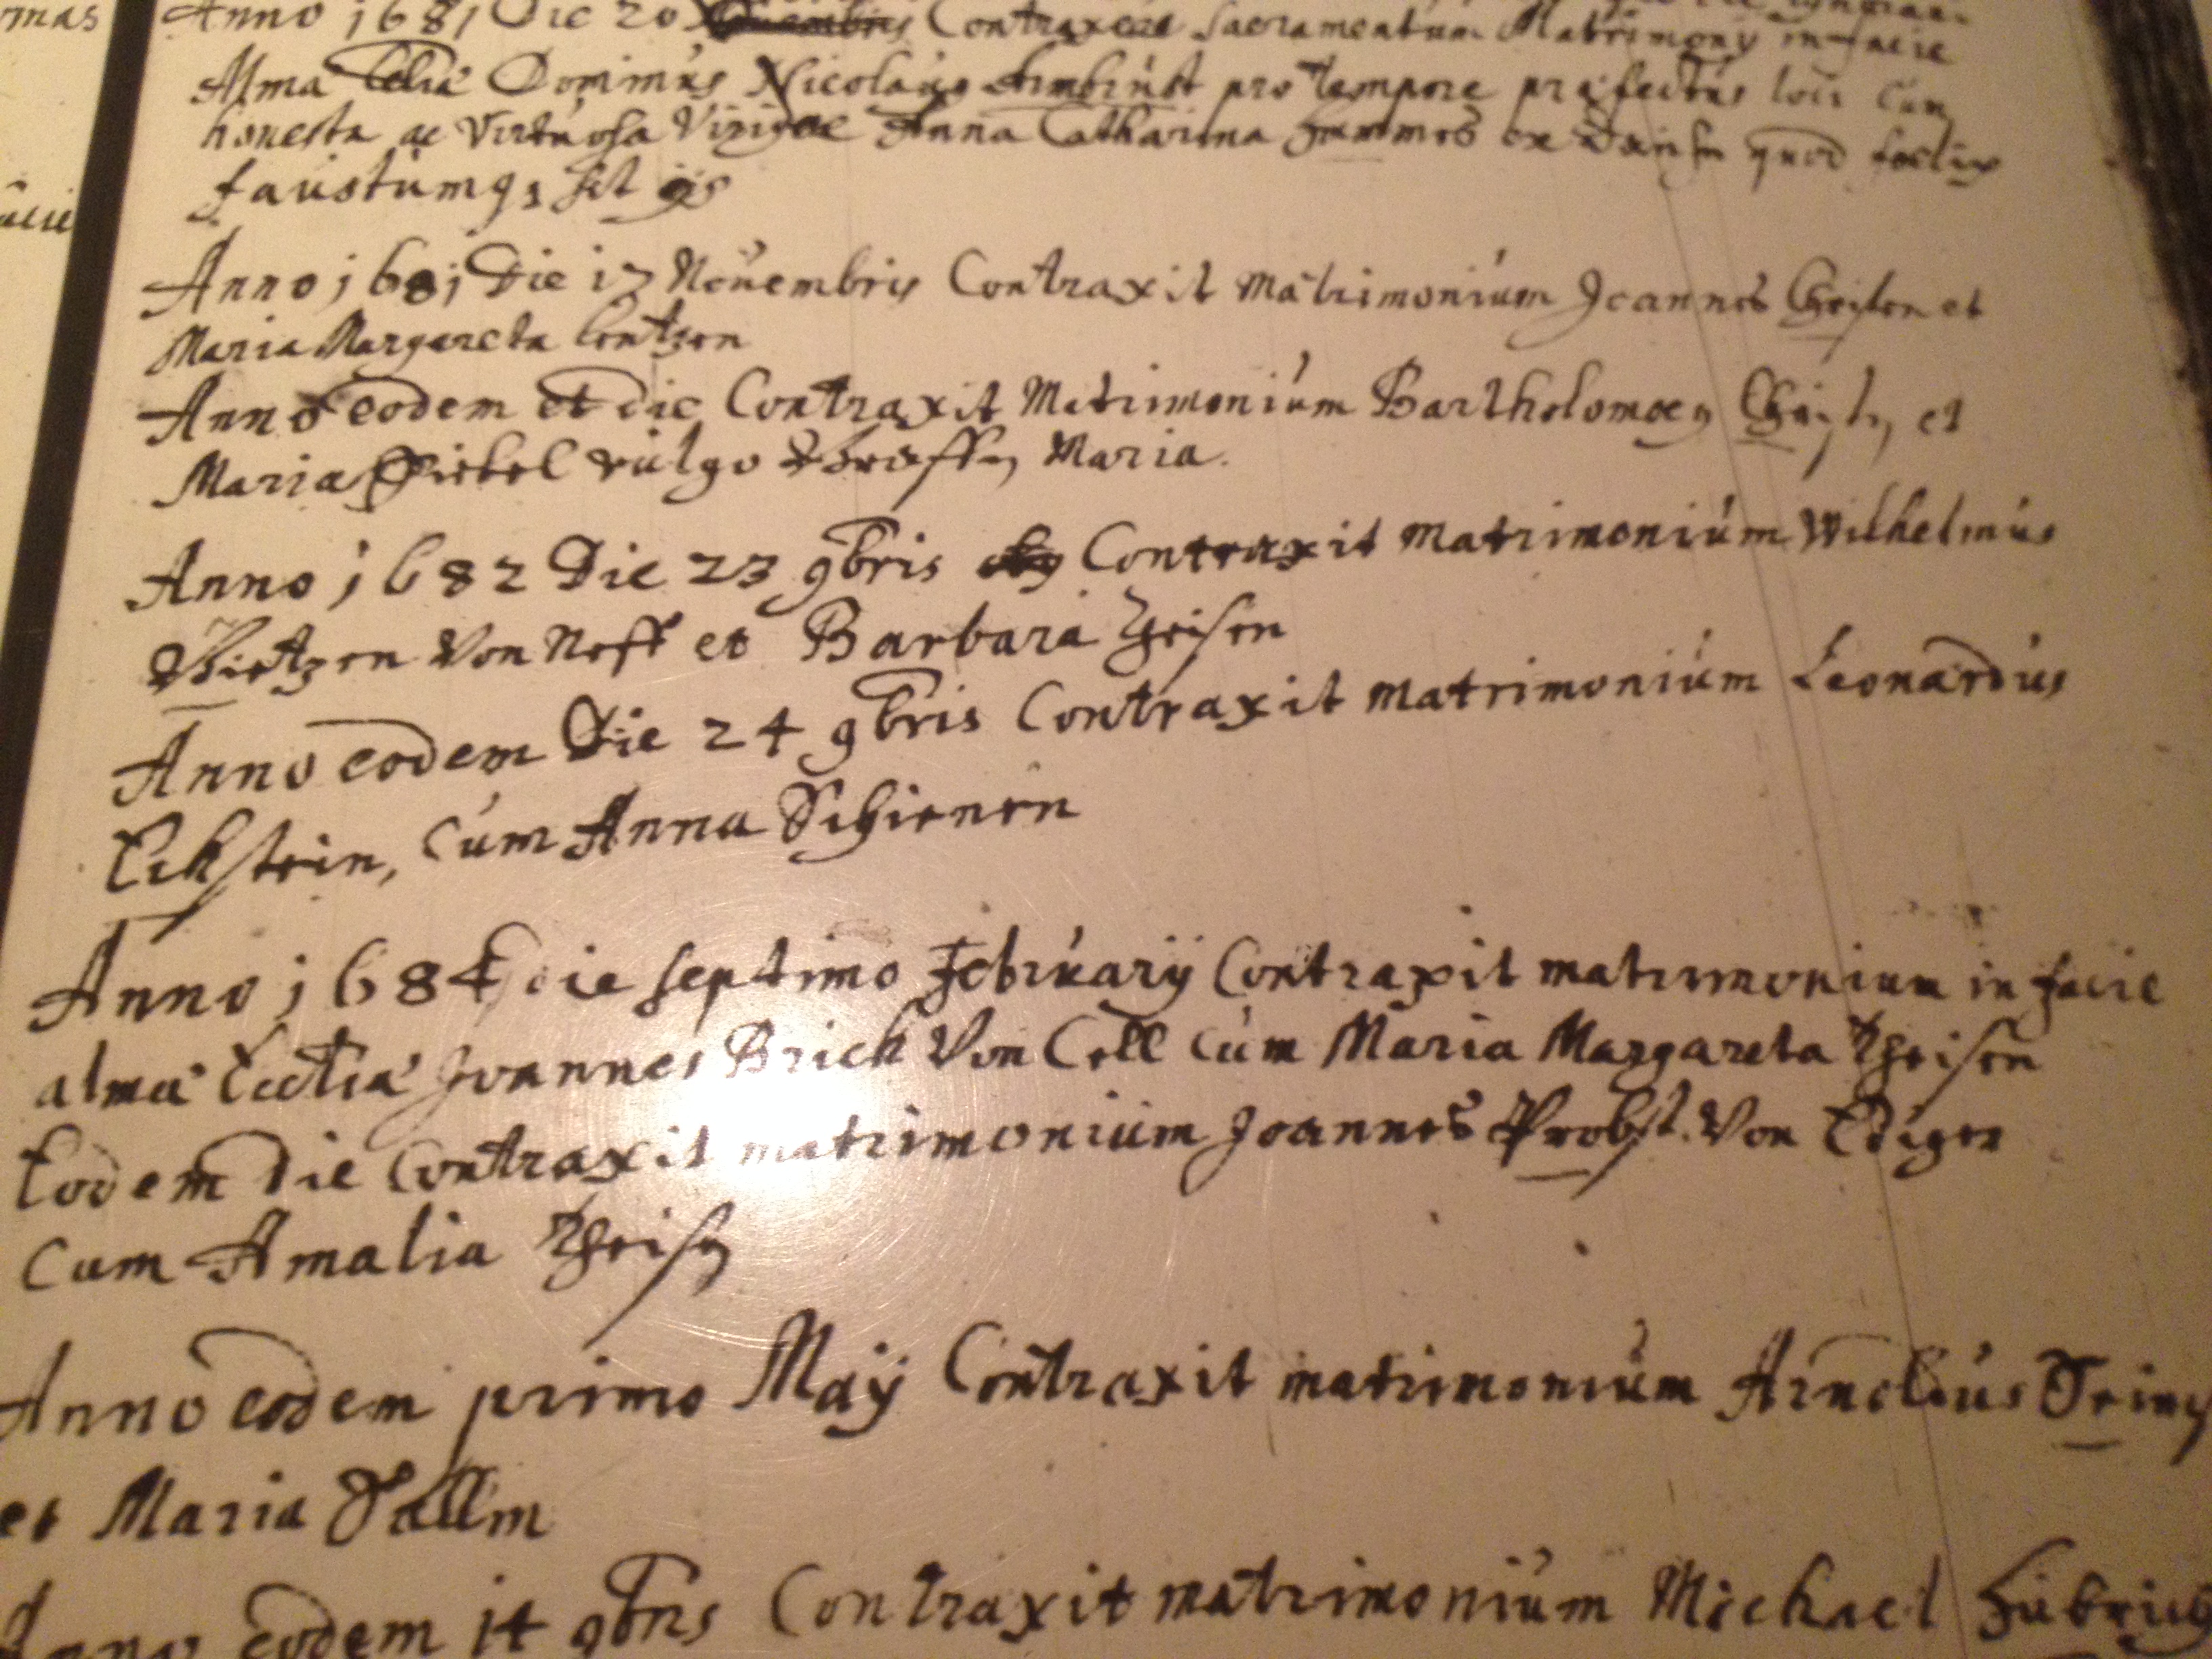 mas
Anno 1681 Die 20 Contraxere Sacramentum Matrimony in facie
Alma Eclia Dominus Nicolaus pro tempore præfectus loci Cum
ucie
honesta ac Virtuosa Virgine Anna Catharina ex quod foelix
faustumq3 sit
Anno 1681 Die 17 Nouembris Contraxit Matrimonium Joannes et
Maria Margareta Lentzen
Anno eodem et die Contraxit Matrimonium Bartholomoeus et
Maria vulgo Maria.
Anno 1682 Die 23 9bris Contraxit Matrimonium Wilhelmus
Von Neff et Barbara Theisen
Anno eodem Die 24 9bris Contraxit Matrimonium Leonardus
Eckstein, Cum Anna Schienen
Anno 1684 die septimo Februarij Contraxit matrimonium in facie
alma Ecclia Joannes Brick Von Cell Cum Maria Margareta Theisen
Eodem die Contraxit matrimonium Joannes Probst Von Ediger
Cum Amalia Theisen
Anno eodem primo Maij Contraxit matrimonium Arnoldus
et Maria
Anno eodem 14 9bris Contraxit matrimonium Michael